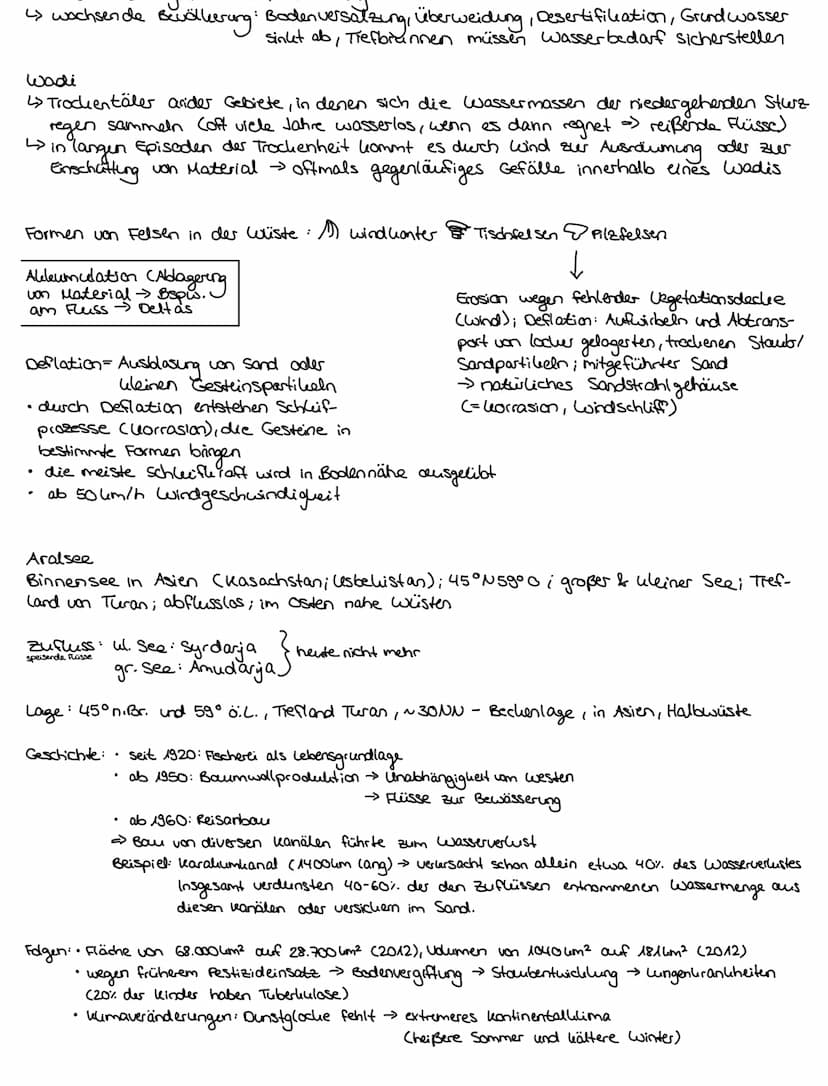 ↳ wachsende Bevölkerung: Bodenversalzung, Überweidung, Desertifikation, Grundwasser
sinkt ab, Tiefbrunnen müssen Wasserbedarf sicherstellen
Wadi
↳ Trockentäler arider Gebiete, in denen sich die Wassermassen der niedergehenden Sturz-
regen sammeln (oft viele Jahre wasserlos, wenn es dann regnet ⇒ reißende Flüsse)
↳ in langen Episoden der Trockenheit kommt es durch Wind zur Ausräumung oder zur
Einschüttung von Material → oftmals gegenläufiges Gefälle innerhalb eines Wadis
Formen von Felsen in der Wüste: Windkanter Tischfelsen Pilzfelsen
Akkumulation (Ablagerung
von Material → Bspw.
am Fluss → Deltas
Erosion wegen fehlender Vegetationsdecke
(Wind); Deflation: Aufwirbeln und Abtrans-
port von locker gelagerten, trockenen Staub/
Sandpartikeln; mitgeführter Sand
→ natürliches Sandstrahlgehäuse
(= Korrasion, Windschliff)
Deflation = Ausblasung von Sand oder
kleinen Gesteinspartikeln
• durch Deflation entstehen Schleif-
prozesse (Korrasion), die Gesteine in
bestimmte Formen bringen
• die meiste Schleifkraft wird in Bodennähe ausgeübt
• ab 50 km/h Windgeschwindigkeit
Aralsee
Binnensee in Asien (Kasachstan; Usbekistan); 45°N 59°O; großer & kleiner See; Tief-
land von Turan; abflusslos; im Osten nahe Wüsten
Zufluss: kl. See: Syrdarja } heute nicht mehr
speisende Flüsse gr. See: Amudarja
Lage: 45° n.Br. und 59° ö.L., Tiefland Turan, ~30NN - Beckenlage, in Asien, Halbwüste
Geschichte: • seit 1920: Fischerei als Lebensgrundlage
• ab 1950: Baumwollproduktion → Unabhängigkeit vom Westen
→ Flüsse zur Bewässerung
• ab 1960: Reisanbau
⇒ Bau von diversen Kanälen führte zum Wasserverlust
Beispiel: Karakumkanal (1400km lang) → verursacht schon allein etwa 40% des Wasserverlustes
Insgesamt verdunsten 40-60% der den Zuflüssen entnommenen Wassermenge aus
diesen Kanälen oder versickern im Sand.
Folgen: • Fläche von 68.000km² auf 28.700km² (2012), Volumen von 1040km² auf 181km² (2012)
• wegen früherem Pestizideinsatz → Bodenvergiftung → Staubentwicklung → Lungenkrankheiten
(20% der Kinder haben Tuberkulose)
• Klimaveränderungen: Dunstglocke fehlt → extremeres Kontinentalklima
(heißere Sommer und kältere Winter)